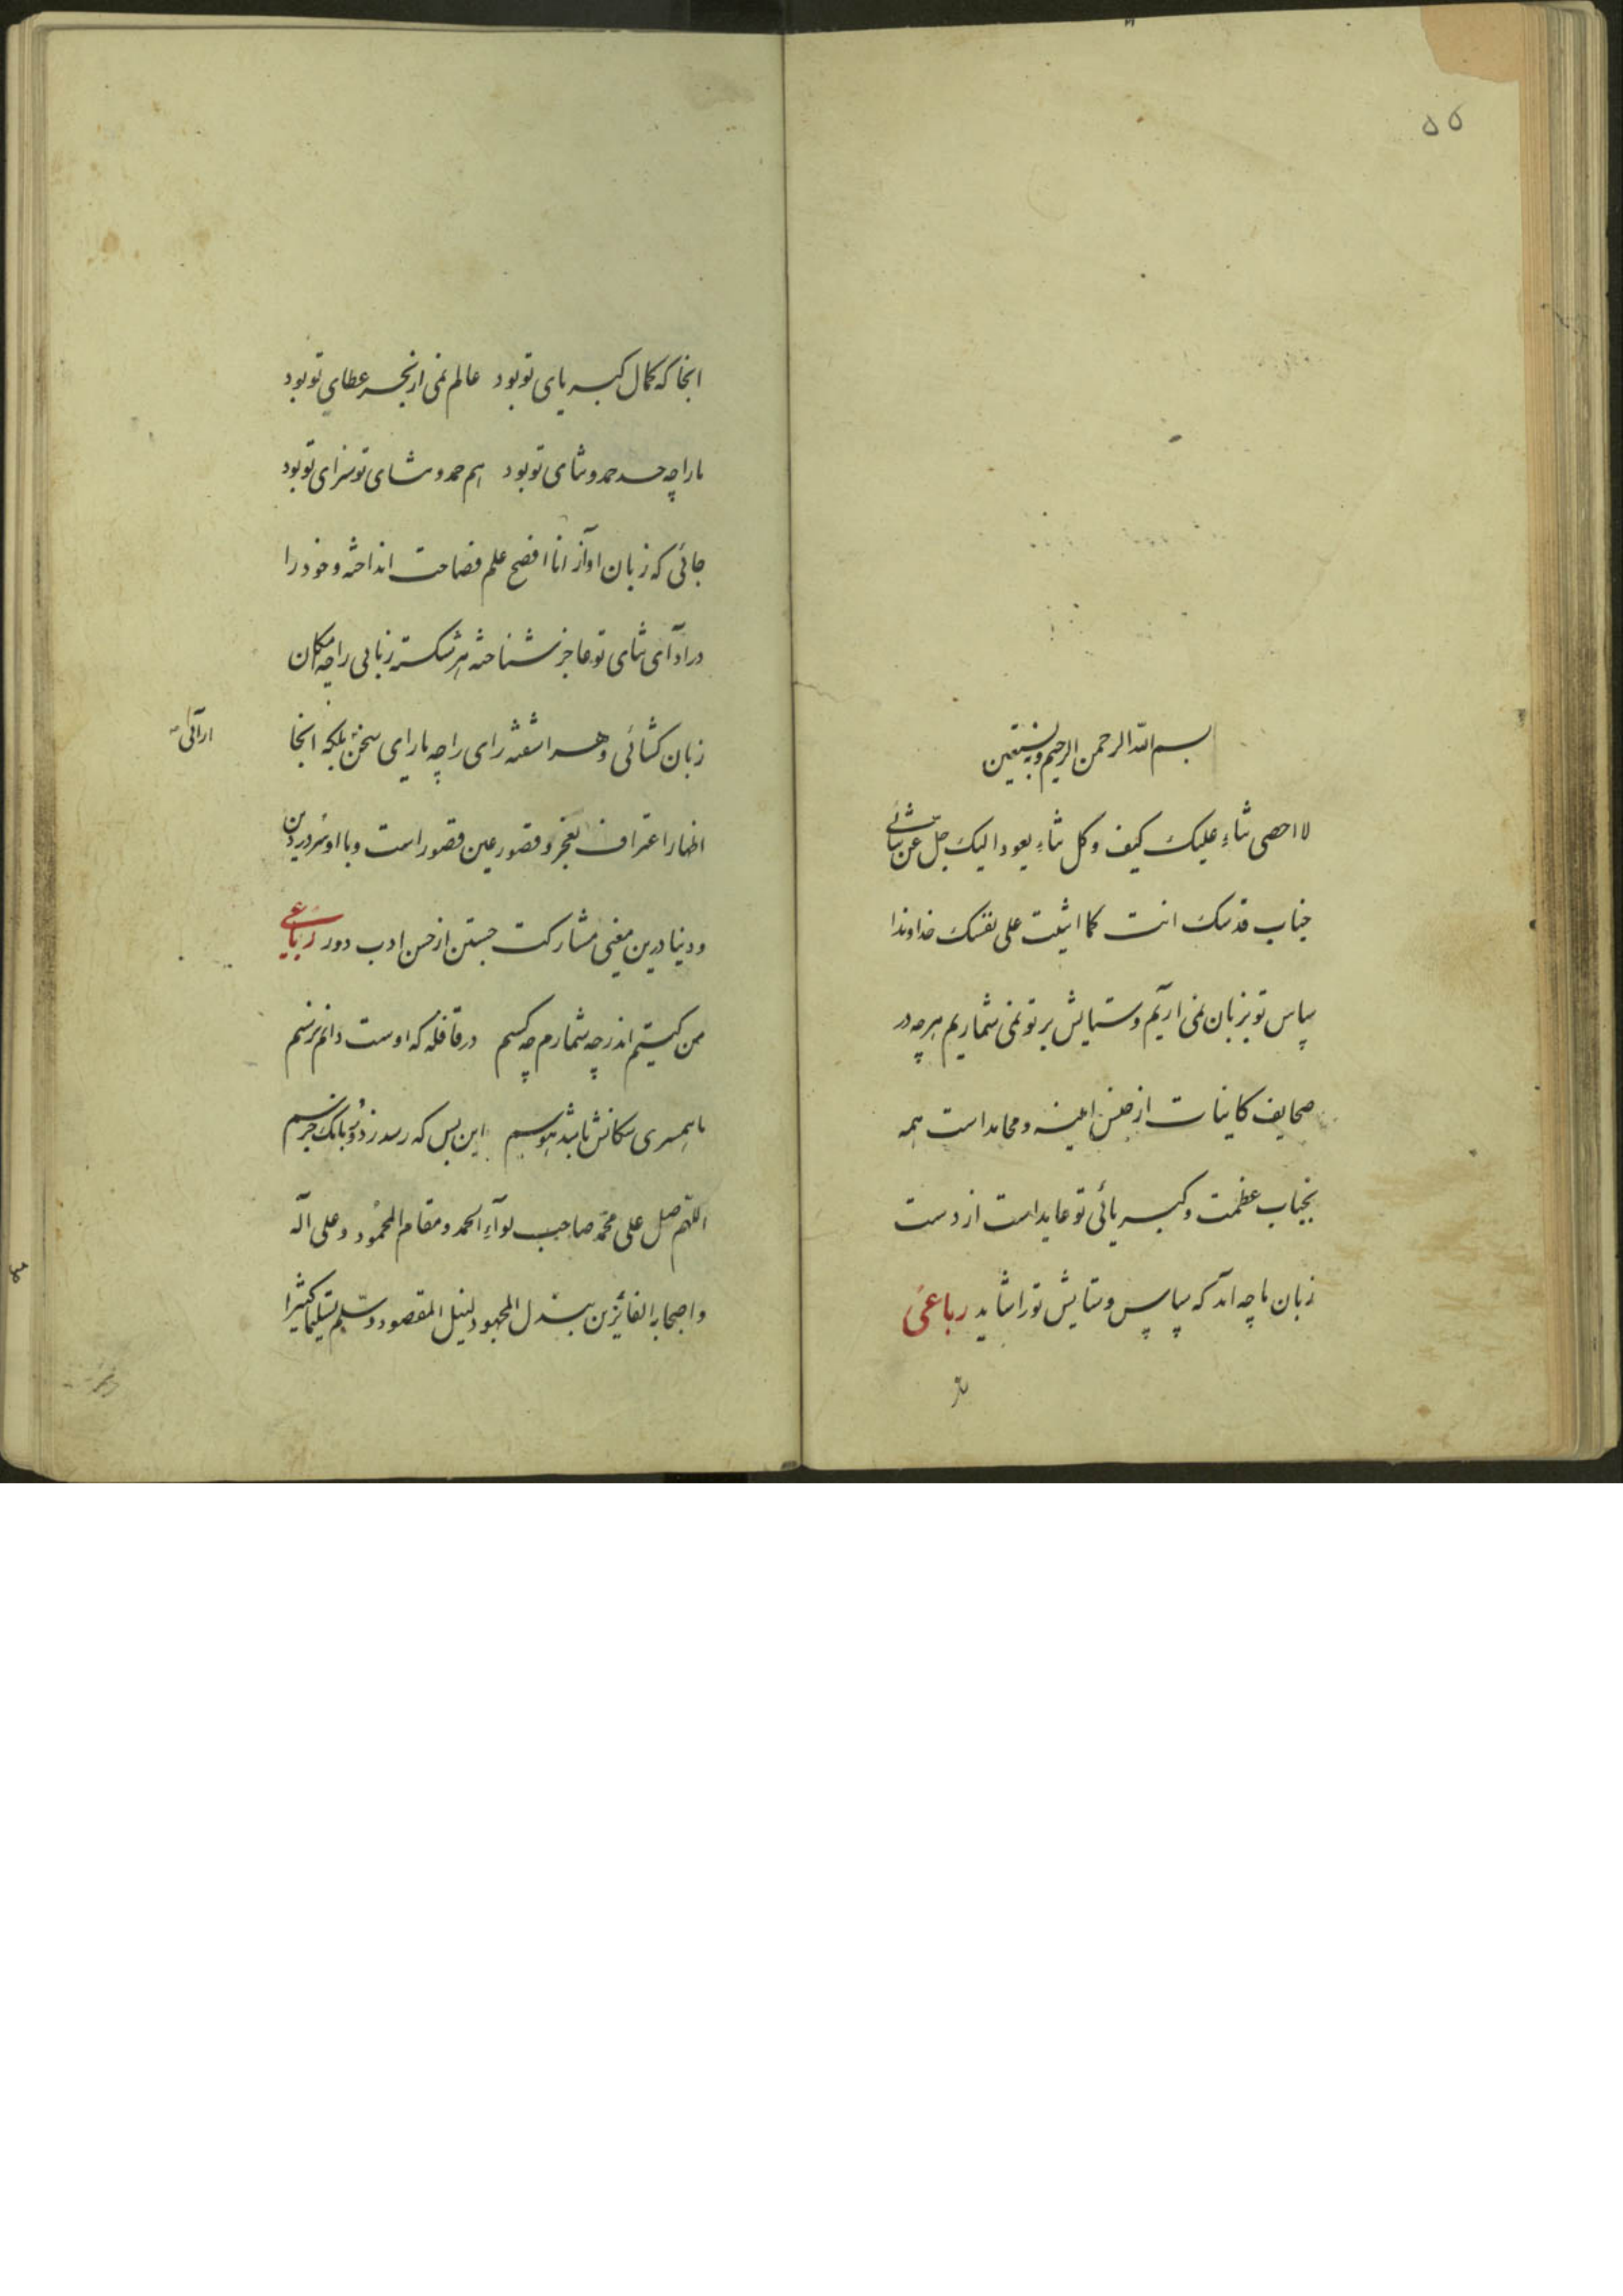 ۵۵
بسم الله الرحمن الرحیم وبه نستعین
لا احصی ثناء علیک کیف وکل ثناء یعود الیک جل عن ثنائی
جناب قدسک انت کما اثنیت علی نفسک خداوندا
سپاس تو بزبان نمی اریم وستایش بر تو نمی شماریم هرچه در
صحایف کاینات از جنس اثنیه ومحامد است همه
بجناب عظمت وکبریائی تو عاید است از دست
زبان ما چه آید که سپاس وستایش تو را شاید رباعی
انجا که کمال کبریای تو بود عالم نمی از بحر عطای تو بود
ما را چه حد حمد وثنای تو بود هم حمد وثنای تو سزای تو بود
جائی که زبان اوآز انا افصح علم فصاحت انداخته وخود را
در ادآی ثنای تو عاجز شناخته هر شکسته زبانی را چه امکان
زبان کشائی وهر اشفته رای را چه یارای سخن بلکه انجا
ارائی
اظهار اعتراف بعجز وقصور عین قصور است وبا او سرور دین
ودنیا درین معنی مشارکت جستن از حسن ادب دور رباعی
من کیستم اندر چه شمارم چه کسم در قافله که اوست دانم نرسم
تا همسری سکانش باشد هوسم این بس که رسد ز دور بانک جرسم
اللهم صل علی محمد صاحب لوآء الحمد ومقام المحمود وعلی اله
واصحابه الفائزین ببذل المجهود لنیل المقصود وسلم تسلیما کثیرا